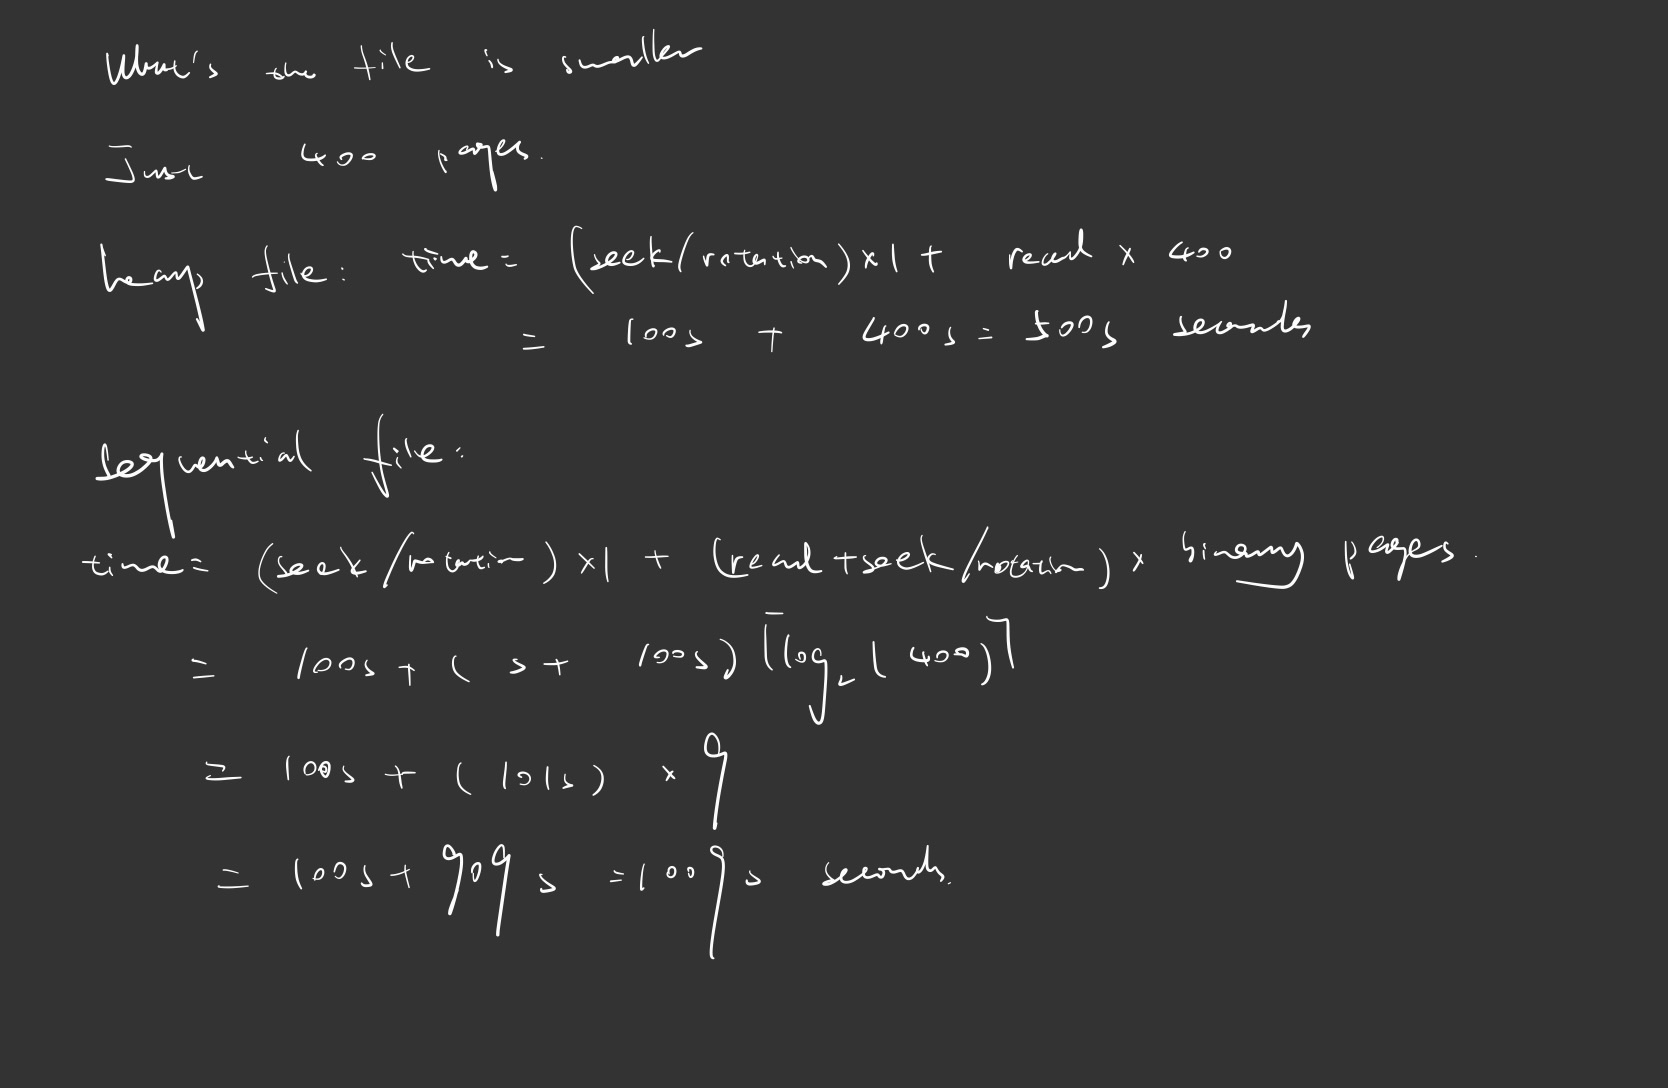 What's the file is smaller
Just 400 pages.
heap file: time = (seek/rotation) × 1 + read × 400
= 100s + 400s = 500s seconds
Sequential file:
time = (seek/rotation) × 1 + (read + seek/rotation) × binary pages.
= 100s + (s + 100s) ⌈log₂(400)⌉
= 100s + (101s) × 9
= 100s + 909s = 1009s seconds.